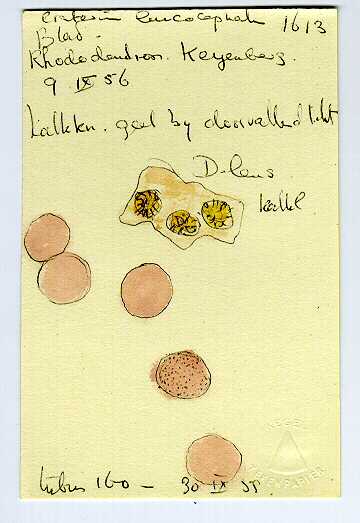 Craterium leucocephalum 1613
Blad.
Rhododendron. Keyenberg.
9 IX 56
Kalkkn. geel by doorvallend licht
D-lens
kalk
tubus 160 — 30 IX 57.